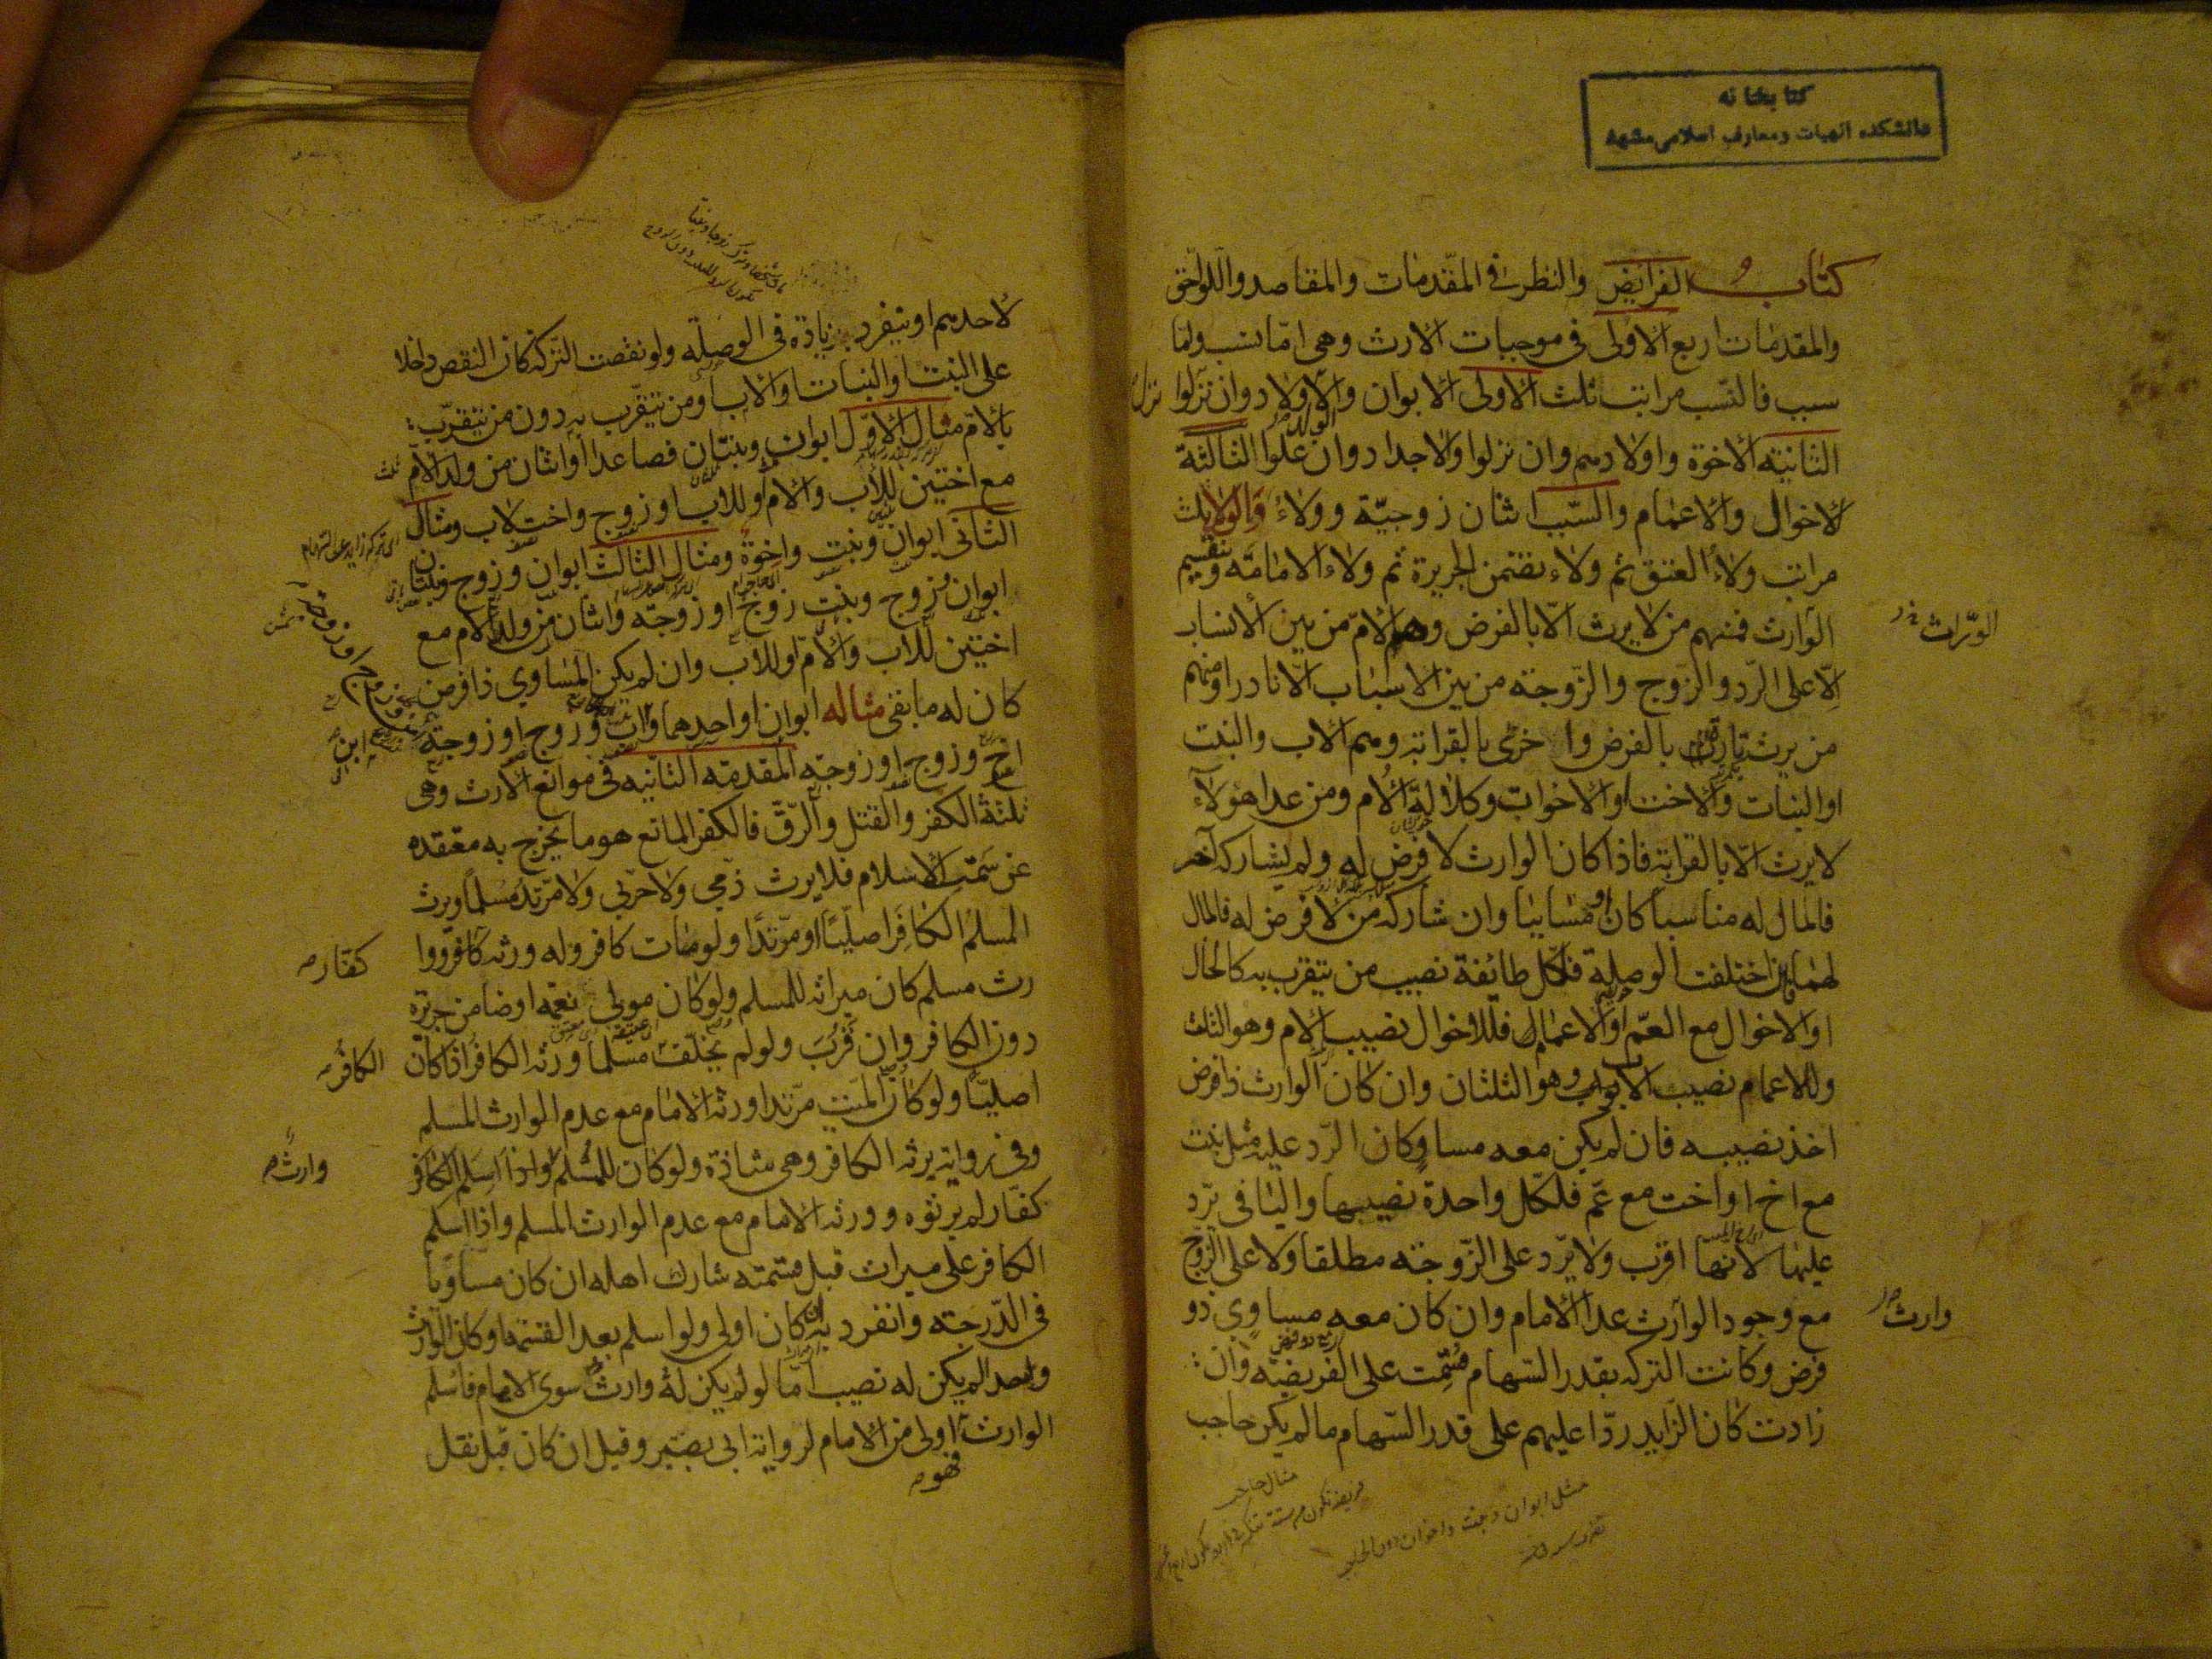 كتابخانه
دانشكده الهيات ومعارف اسلامى مشهد
كتاب الفرايض والنظر فى المقدمات والمقاصد واللواحق
والمقدمات اربع الاولى فى موجبات الارث وهى امّا نسب وامّا
سبب فالنسب مراتب ثلث الاولى الابوان والاولاد وان نزلوا
الثانية الاخوة واولادهم وان نزلوا والاجداد وان علوا الثالثة
الاخوال والاعمام والسّبب اثنان زوجيّة وولاء والولا ثلث
مراتب ولاء العتق ثم ولاء تضمن الجريرة ثم ولاء الامامة وينقسم
الوارث فمنهم من لا يرث الّا بالفرض وهم الامّ من بين الانساب
الّا على الرّد والزوج والزّوجة من بين الاسباب الّا نادرا ومنهم
من يرث تارة بالفرض واخرى بالقرابة وهم الاب والبنت
او البنات والاخت او الاخوات وكلالة الام ومن عدا هؤلاء
لا يرث الّا بالقرابة فاذا كان الوارث لا فرض له ولم يشاركه آخر
فالمال له مناسبا كان او مسابيا وان شاركه من لا فرض له فالمال
لهما فان اختلفت الوصلة فلكل طائفة نصيب من يتقرب به كالخال
او الاخوال مع العمّ او الاعمام فللاخوال نصيب الام وهو الثلث
وللاعمام نصيب الاب وهو الثلثان وان كان الوارث ذا فرض
اخذ نصيبه فان لم يكن معه مساو كان الرّد عليه مثل بنت
مع اخ او اخت مع عم فلكل واحدة نصيبها والباقى يرّد
عليها لانها اقرب ولا يرّد على الزّوجة مطلقا ولا على الزوج
مع وجود الوارث عدا الامام وان كان معه مساوى ذو
فرض وكانت التركة بقدر السّهام قسّمت على الفريضة وان
زادت كان الزّايد ردّا عليهم على قدر السّهام ما لم يكن حاجب
الورّاث
وارث
مثال حاجب
مثل ابوان وبنت واخوان
لاحدهم او ينفرد بزيادة فى الوصلة ولو نقصت التّركة كان النقص داخلا
على البنت او البنات والاب او من يتقرب به دون من يتقرب
بالامّ مثال الاوّل ابوان وبنتان فصاعدا او اثنان من ولد الام
مع اختين للاب والام او للاب او زوج واخت لاب ومثال
الثانى ابوان وبنت واخوة ومثال الثالث ابوان وزوج وبنتان
ابوان وزوج وبنت زوج او زوجة واثنان من ولد الام مع
اختين للاب والام او للاب وان لم يكن المساوى ذا فرض
كان له ما بقى مثاله ابوان او احدهما وابن وزوج او زوجة
اخ وزوج او زوجة المقدمة الثانية فى موانع الارث وهى
ثلثة الكفر والقتل والرّقّ فالكفر المانع هو ما يخرج به معتقده
عن سمت الاسلام فلا يرث ذمى ولا حربى ولا مرتد مسلما ويرث
المسلم الكافر اصليّا او مرتدا ولو مات كافر وله ورثة كافر ووا
رث مسلم كان ميراثه للمسلم ولو كان مولى نعمة او ضامن جريرة
دون الكافر وان قرب ولو لم يخلف مسلما ورثه الكافر اذا كان
اصليّا ولو كان الميّت مرتدا ورثه الامام مع عدم الوارث المسلم
وفى رواية يرثه الكافر وهى شاذة ولو كان للمسلم واذا اسلم الكافر
كفّار لم يرثوه وورثه الامام مع عدم الوارث المسلم واذا اسلم
الكافر على ميراث قبل قسمته شارك اهله ان كان مساويا
فى الدّرجة وانفرد به ان كان اولى ولو اسلم بعد القسمة او كان الوارث
واحدا لم يكن له نصيب امّا لو لم يكن له وارث سوى الامام فاسلم
الوارث اولى من الامام لرواية ابى بصير وقيل ان كان قبل نقل
فهو
كفّار
الكافر
وارث
ابن